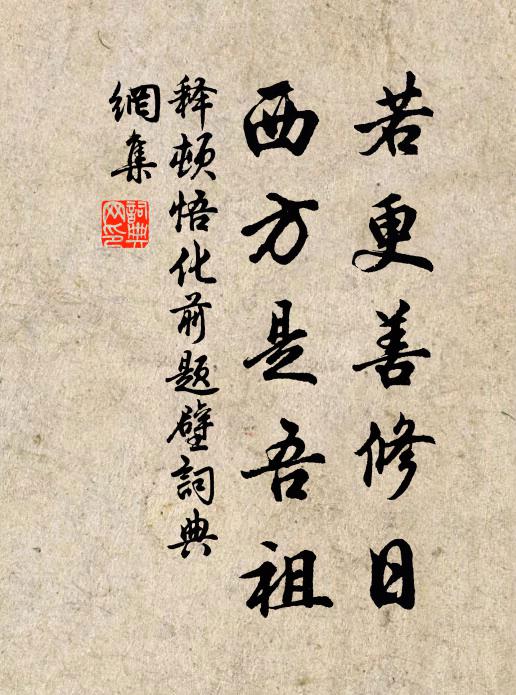 若更善修日
西方是吾祖
释顿悟化前题壁詞典
網集
詞典
网印